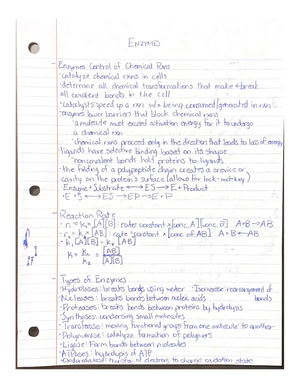 ENZYMES
Enzymes Control of Chemical Rxns
· catalyze chemical rxns in cells
· determine all chemical transformations that make + break
all covalent bonds in the cell
· catalysts speed up a rxn w/o being consumed/generated in rxn
· enzymes lower barriers that block chemical rxns
· a molecule must exceed activation energy for it to undergo
a chemical rxn
· chemical rxns proceed only in the direction that leads to loss of energy
· ligands have selective binding based on its shape
· noncovalent bonds hold proteins to ligands
· the folding of a polypeptide chain creates a crevice or
cavity on the protein's surface (allows for lock-and-key)
· Enzyme + Substrate ⟷ ES → E + Product
· E + S ⟷ ES ⟷ EP ⟷ E + P
Reaction Rate
· r₁ = k₁ [A][B] : rate constant × [conc. A][conc. B] A+B → AB
· r₂ = k₂ [AB] : rate constant × [conc of AB] A+B ← AB
· k₁ [A][B] = k₂ [AB]
K = k₁/k₂ = [AB]/[A][B]
Types of Enzymes
· Hydrolases: breaks bonds using water · Isomerase: rearrangement of bonds
· Nucleases: breaks bonds between nucleic acids
· Proteases: breaks bonds between proteins by hydrolysis
· Synthases: condensing small molecules
· Transferase: moving functional groups from one molecule to another
· Polymerase: catalyze formation of polymers
· Ligase: Form bonds between molecules
· ATPases: hydrolysis of ATP
· Oxidoreductase: transfer of electrons to change oxidation state